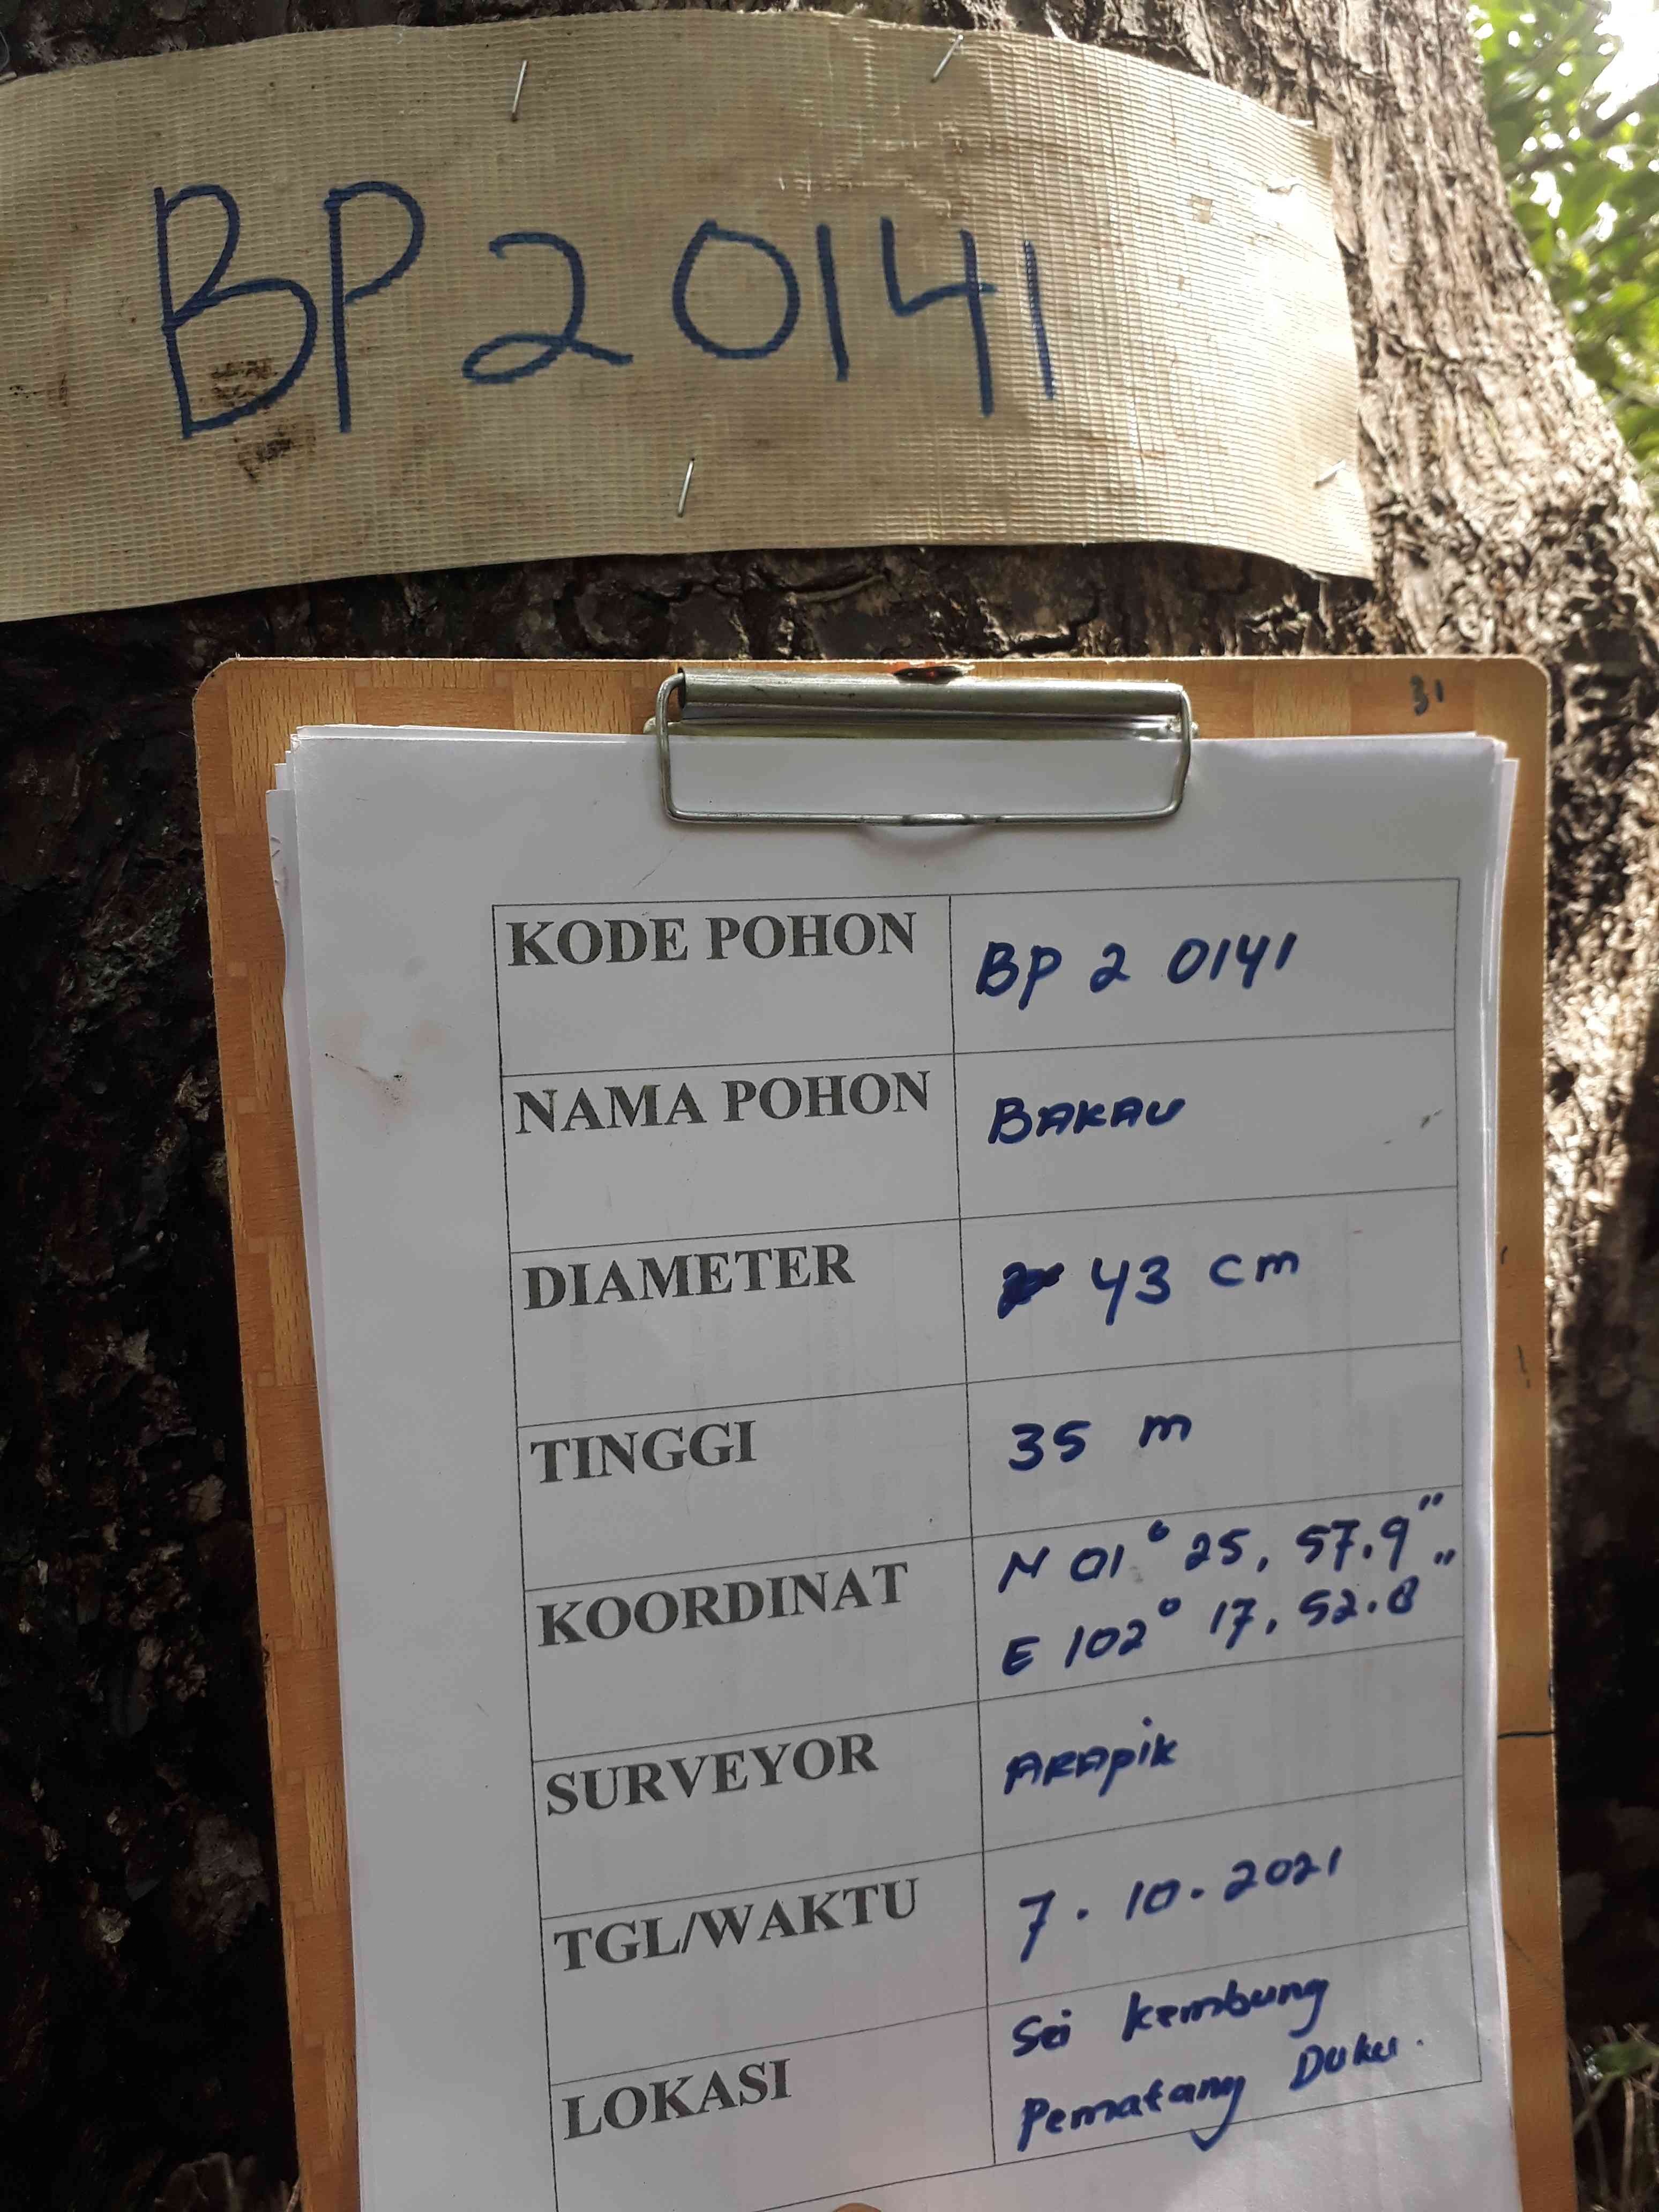 BP 2 0141
31
KODE POHON BP 2 0141
NAMA POHON BAKAU
DIAMETER 43 cm
TINGGI 35 m
KOORDINAT N 01° 25, 57.9"
E 102° 17, 52.8"
SURVEYOR ARApik
TGL/WAKTU 7.10.2021
LOKASI Sei kembung
Pematang Duku.